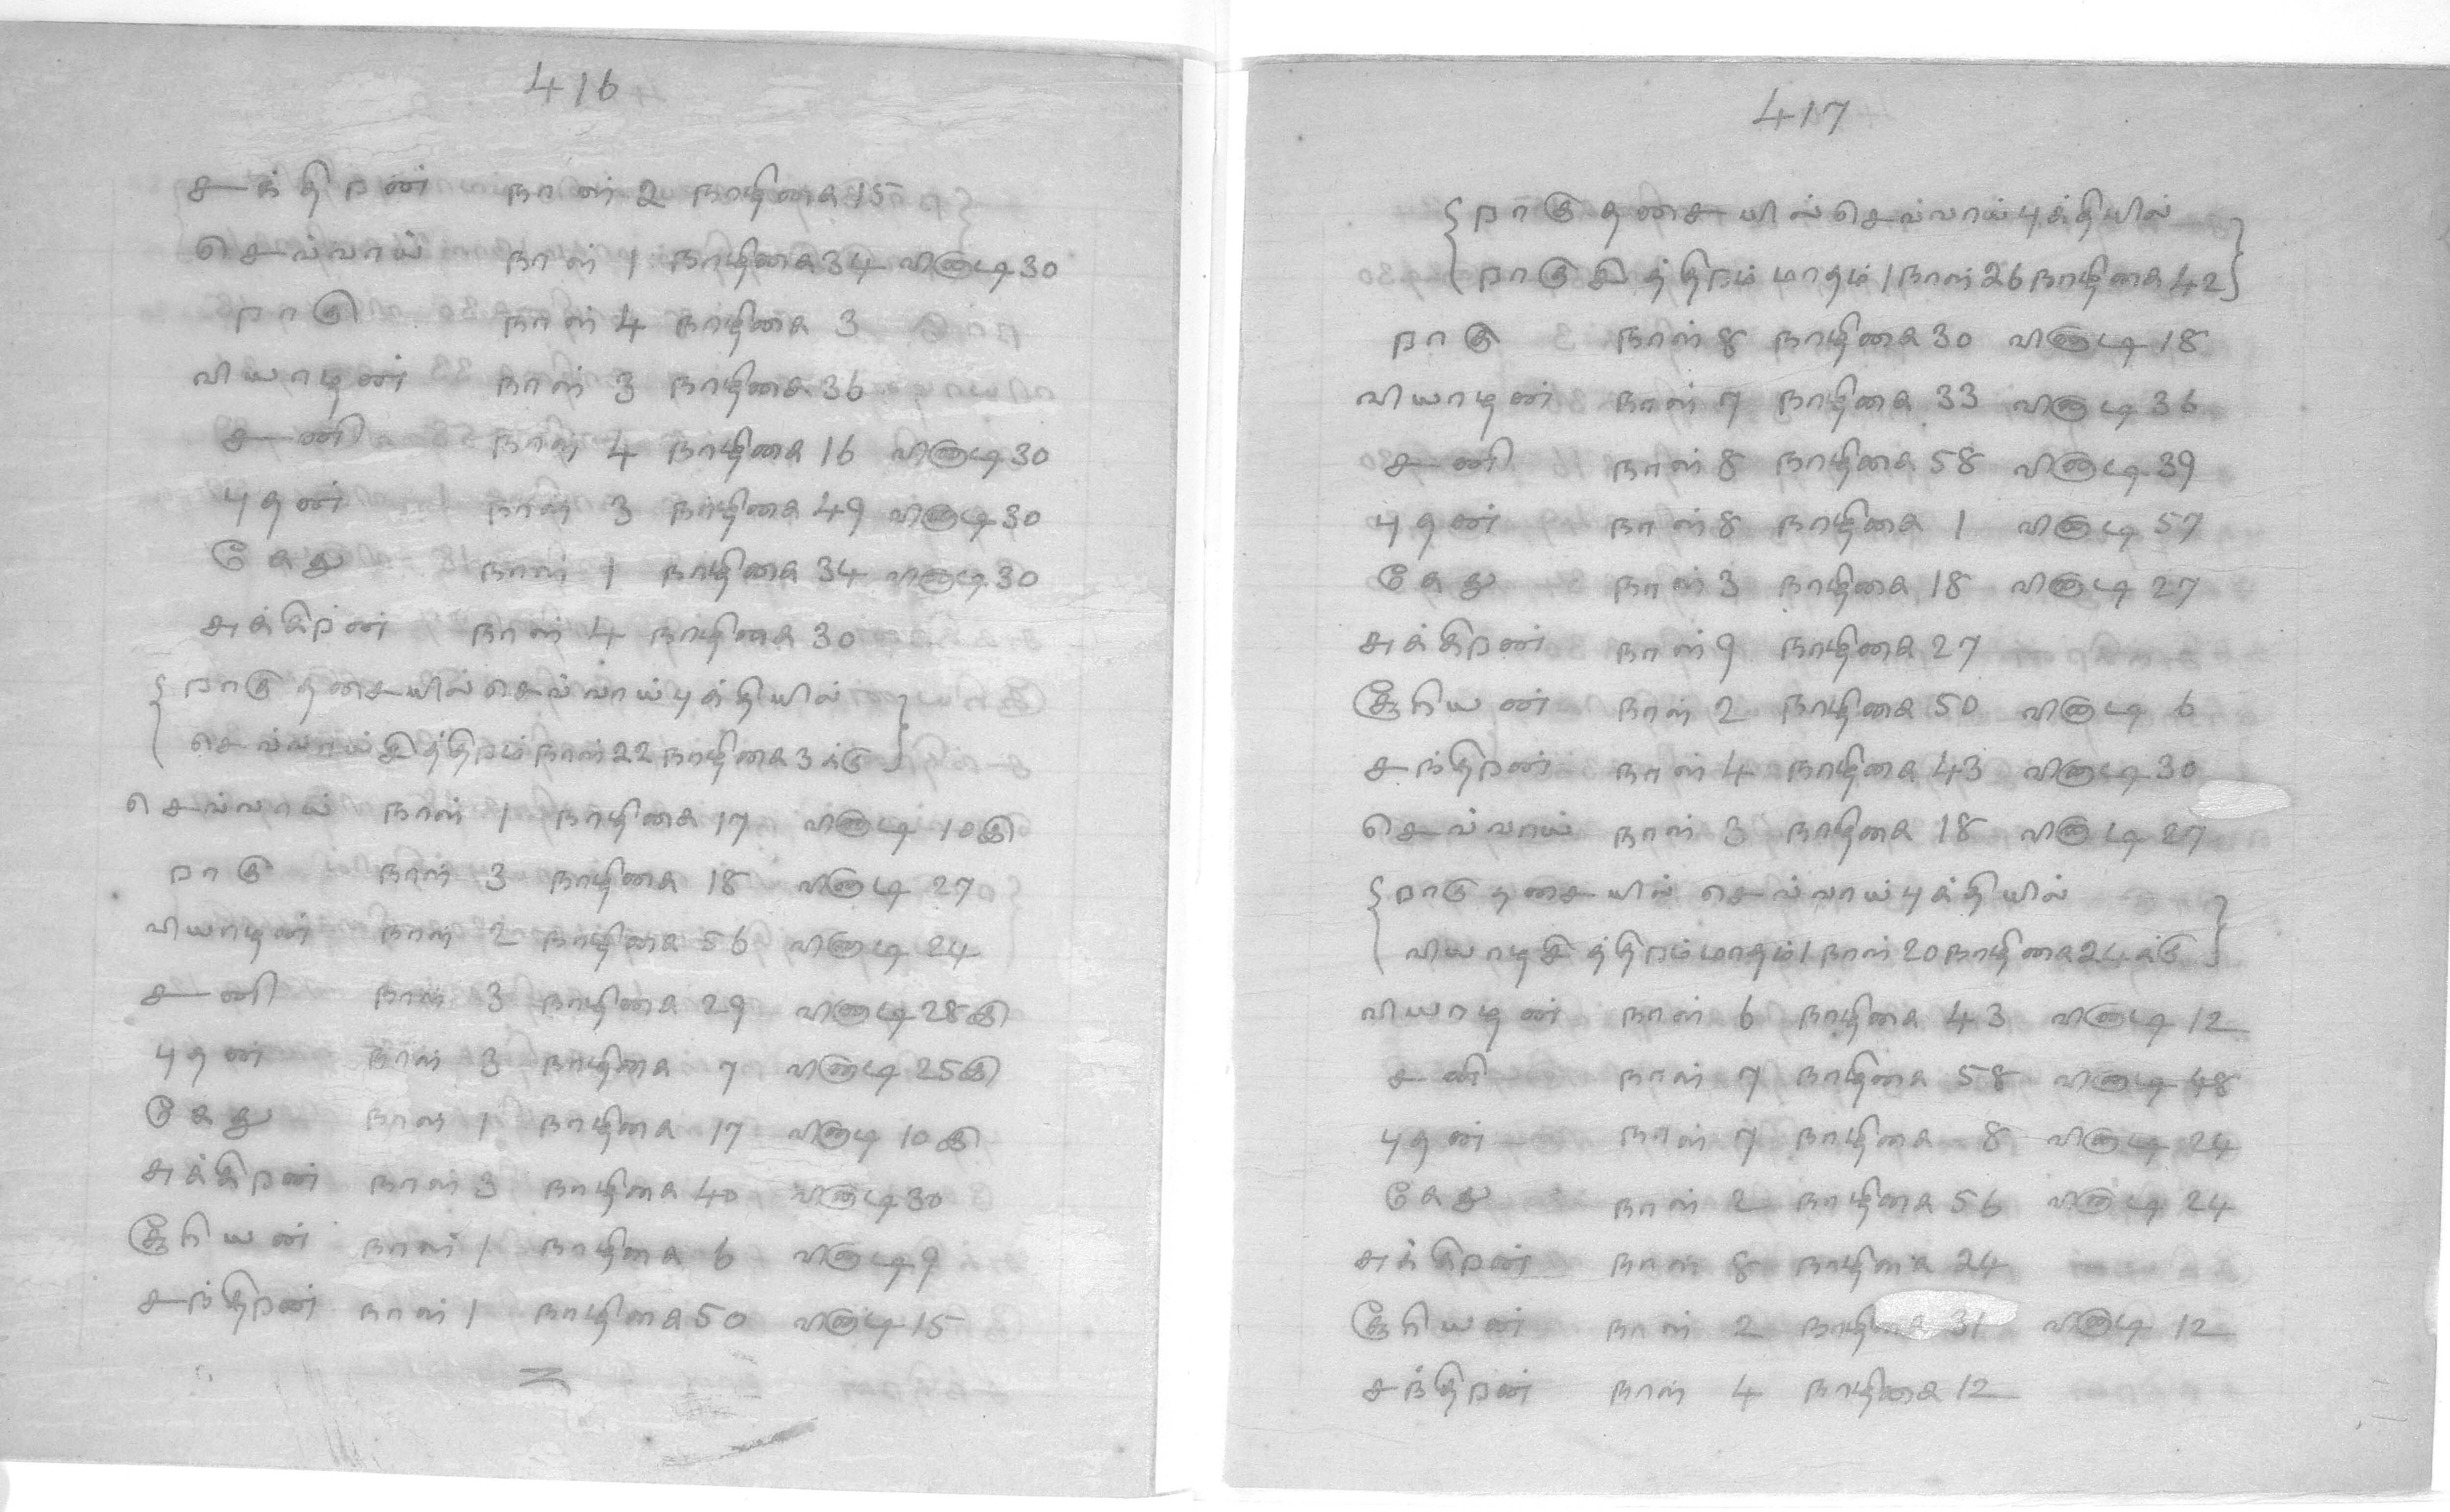 416
சந்திறன் நாள் 2 நாழிகை 15
செவ்வாய் நாள் 1 நாழிகை 34 விநாடி 30
றாகு நாள் 4 நாழிகை 3
வியாழன் நாள் 3 நாழிகை 36
சனி நாள் 4 நாழிகை 16 விநாடி 30
புதன் நாள் 3 நாழிகை 49 விநாடி 30
கேது நாள் 1 நாழிகை 34 விநாடி 30
சுக்கிறன் நாள் 4 நாழிகை 30
{றாகு தசையில் செவ்வாய் புக்தியில்
செவ்வாய் சித்திறம் நாள் 22 நாழிகை 3க்கு}
செவ்வாய் நாள் 1 நாழிகை 17 விநாடி 10இ
றாகு நாள் 3 நாழிகை 18 விநாடி 27
வியாழன் நாள் 2 நாழிகை 56 விநாடி 24
சனி நாள் 3 நாழிகை 29 விநாடி 28இ
புதன் நாள் 3 நாழிகை 7 விநாடி 25இ
கேது நாள் 1 நாழிகை 17 விநாடி 10இ
சுக்கிறன் நாள் 3 நாழிகை 40 விநாடி 30
சூரியன் நாள் 1 நாழிகை 6 விநாடி 9
சந்திறன் நாள் 1 நாழிகை 50 விநாடி 15
417
{றாகு தசையில் செவ்வாய் புக்தியில்
றாகு சித்திறம் மாதம் 1 நாள் 26 நாழிகை 42}
றாகு நாள் 8 நாழிகை 30 விநாடி 18
வியாழன் நாள் 7 நாழிகை 33 விநாடி 36
சனி நாள் 8 நாழிகை 58 விநாடி 39
புதன் நாள் 8 நாழிகை 1 விநாடி 57
கேது நாள் 3 நாழிகை 18 விநாடி 27
சுக்கிறன் நாள் 9 நாழிகை 27
சூரியன் நாள் 2 நாழிகை 50 விநாடி 6
சந்திறன் நாள் 4 நாழிகை 43 விநாடி 30
செவ்வாய் நாள் 3 நாழிகை 18 விநாடி 27
{றாகு தசையில் செவ்வாய் புக்தியில்
வியாழ சித்திறம் மாதம் 1 நாள் 20 நாழிகை 24க்கு}
வியாழன் நாள் 6 நாழிகை 43 விநாடி 12
சனி நாள் 7 நாழிகை 58 விநாடி 48
புதன் நாள் 7 நாழிகை 8 விநாடி 24
கேது நாள் 2 நாழிகை 56 விநாடி 24
சுக்கிறன் நாள் 8 நாழிகை 24
சூரியன் நாள் 2 நாழிகை 31 விநாடி 12
சந்திறன் நாள் 4 நாழிகை 12